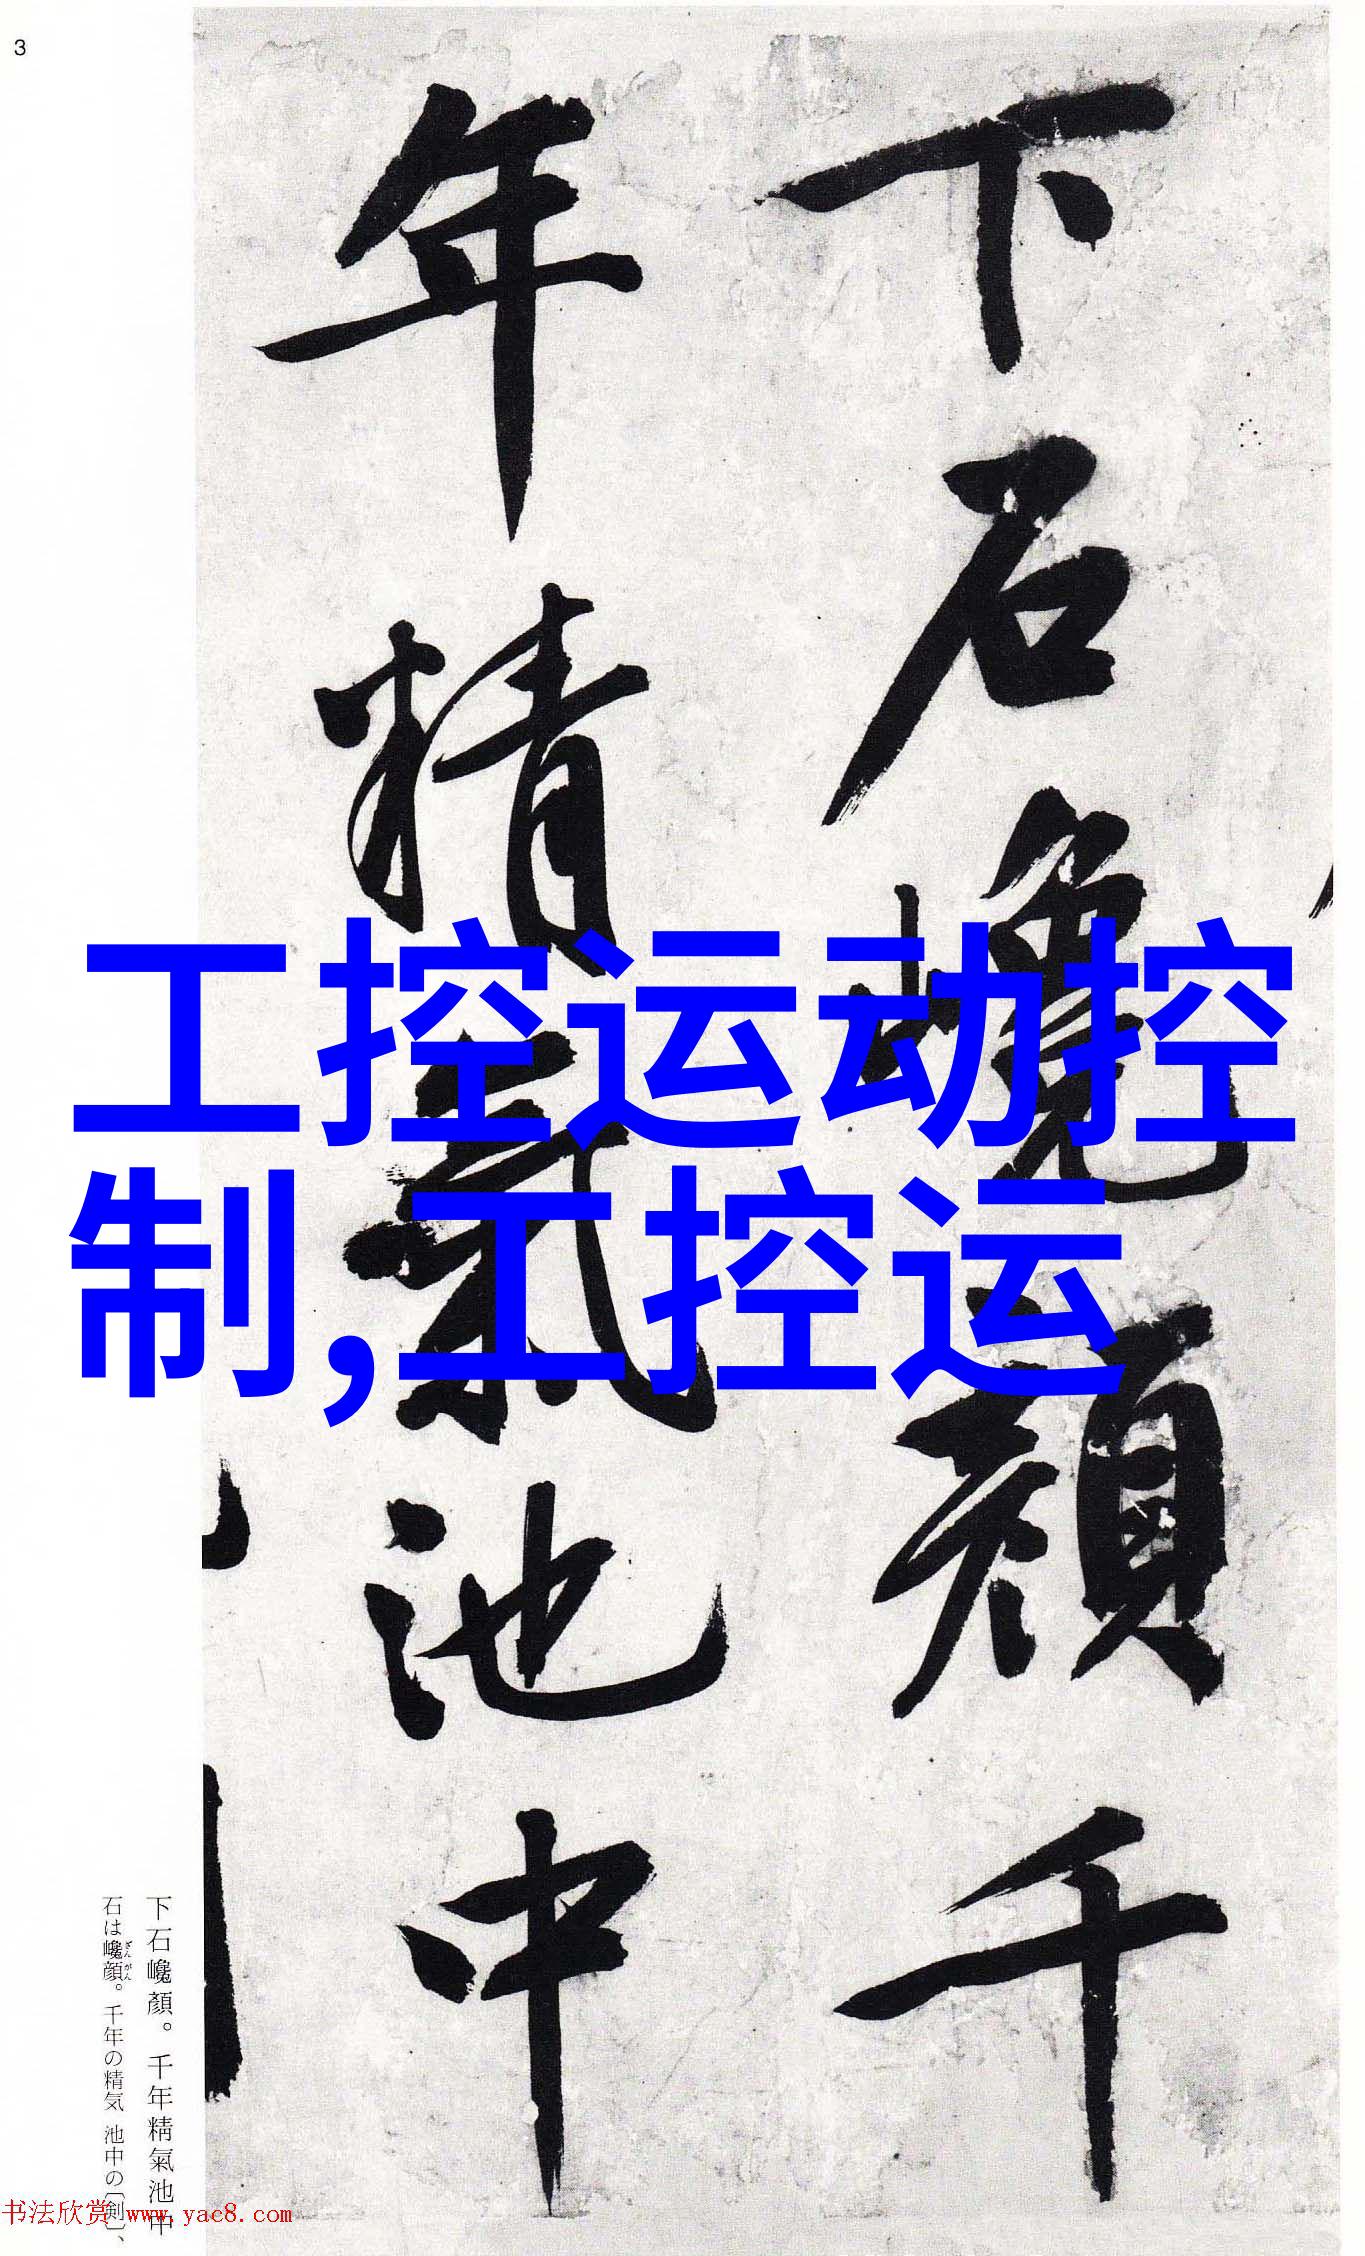 3
下石巉顏千
年精氣池中
工控运动控
制,工控运
下石巉顏。千年精氣池中
石は巉顔。千年の精気 池中の〔剣〕、
ざん がん
书法欣赏 www.yac8.com